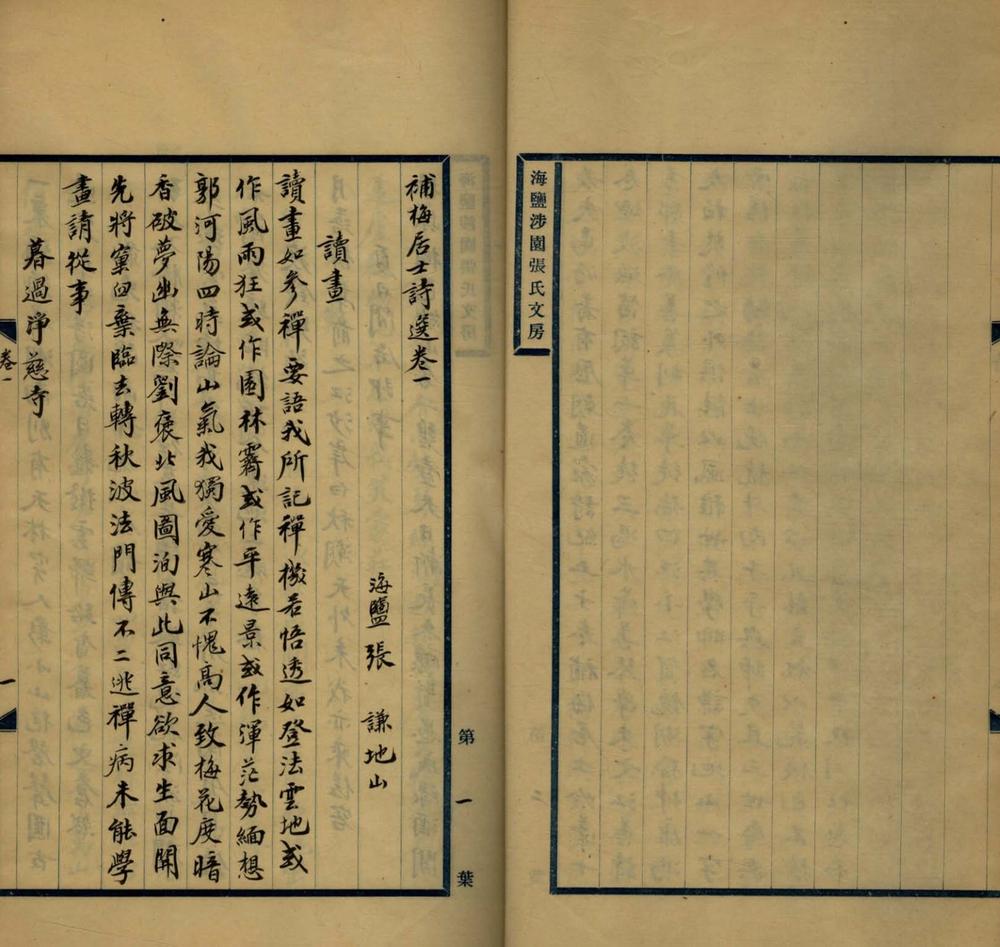 海鹽涉園張氏文房
第一葉
補梅居士詩選卷一
海鹽張謙地山
讀畫
讀畫如參禪要語我所記禪機若悟透如登法雲地或
作風雨狂或作園林霽或作平遠景或作渾茫勢緬想
郭河陽四時論山氣我獨愛寒山不愧高人致梅花度暗
香破夢幽無際劉褒北風圖洵與此同意欲求生面開
先將窠臼棄臨去轉秋波法門傳不二逃禪病未能學
畫請從事
暮過淨慈寺
卷一
一